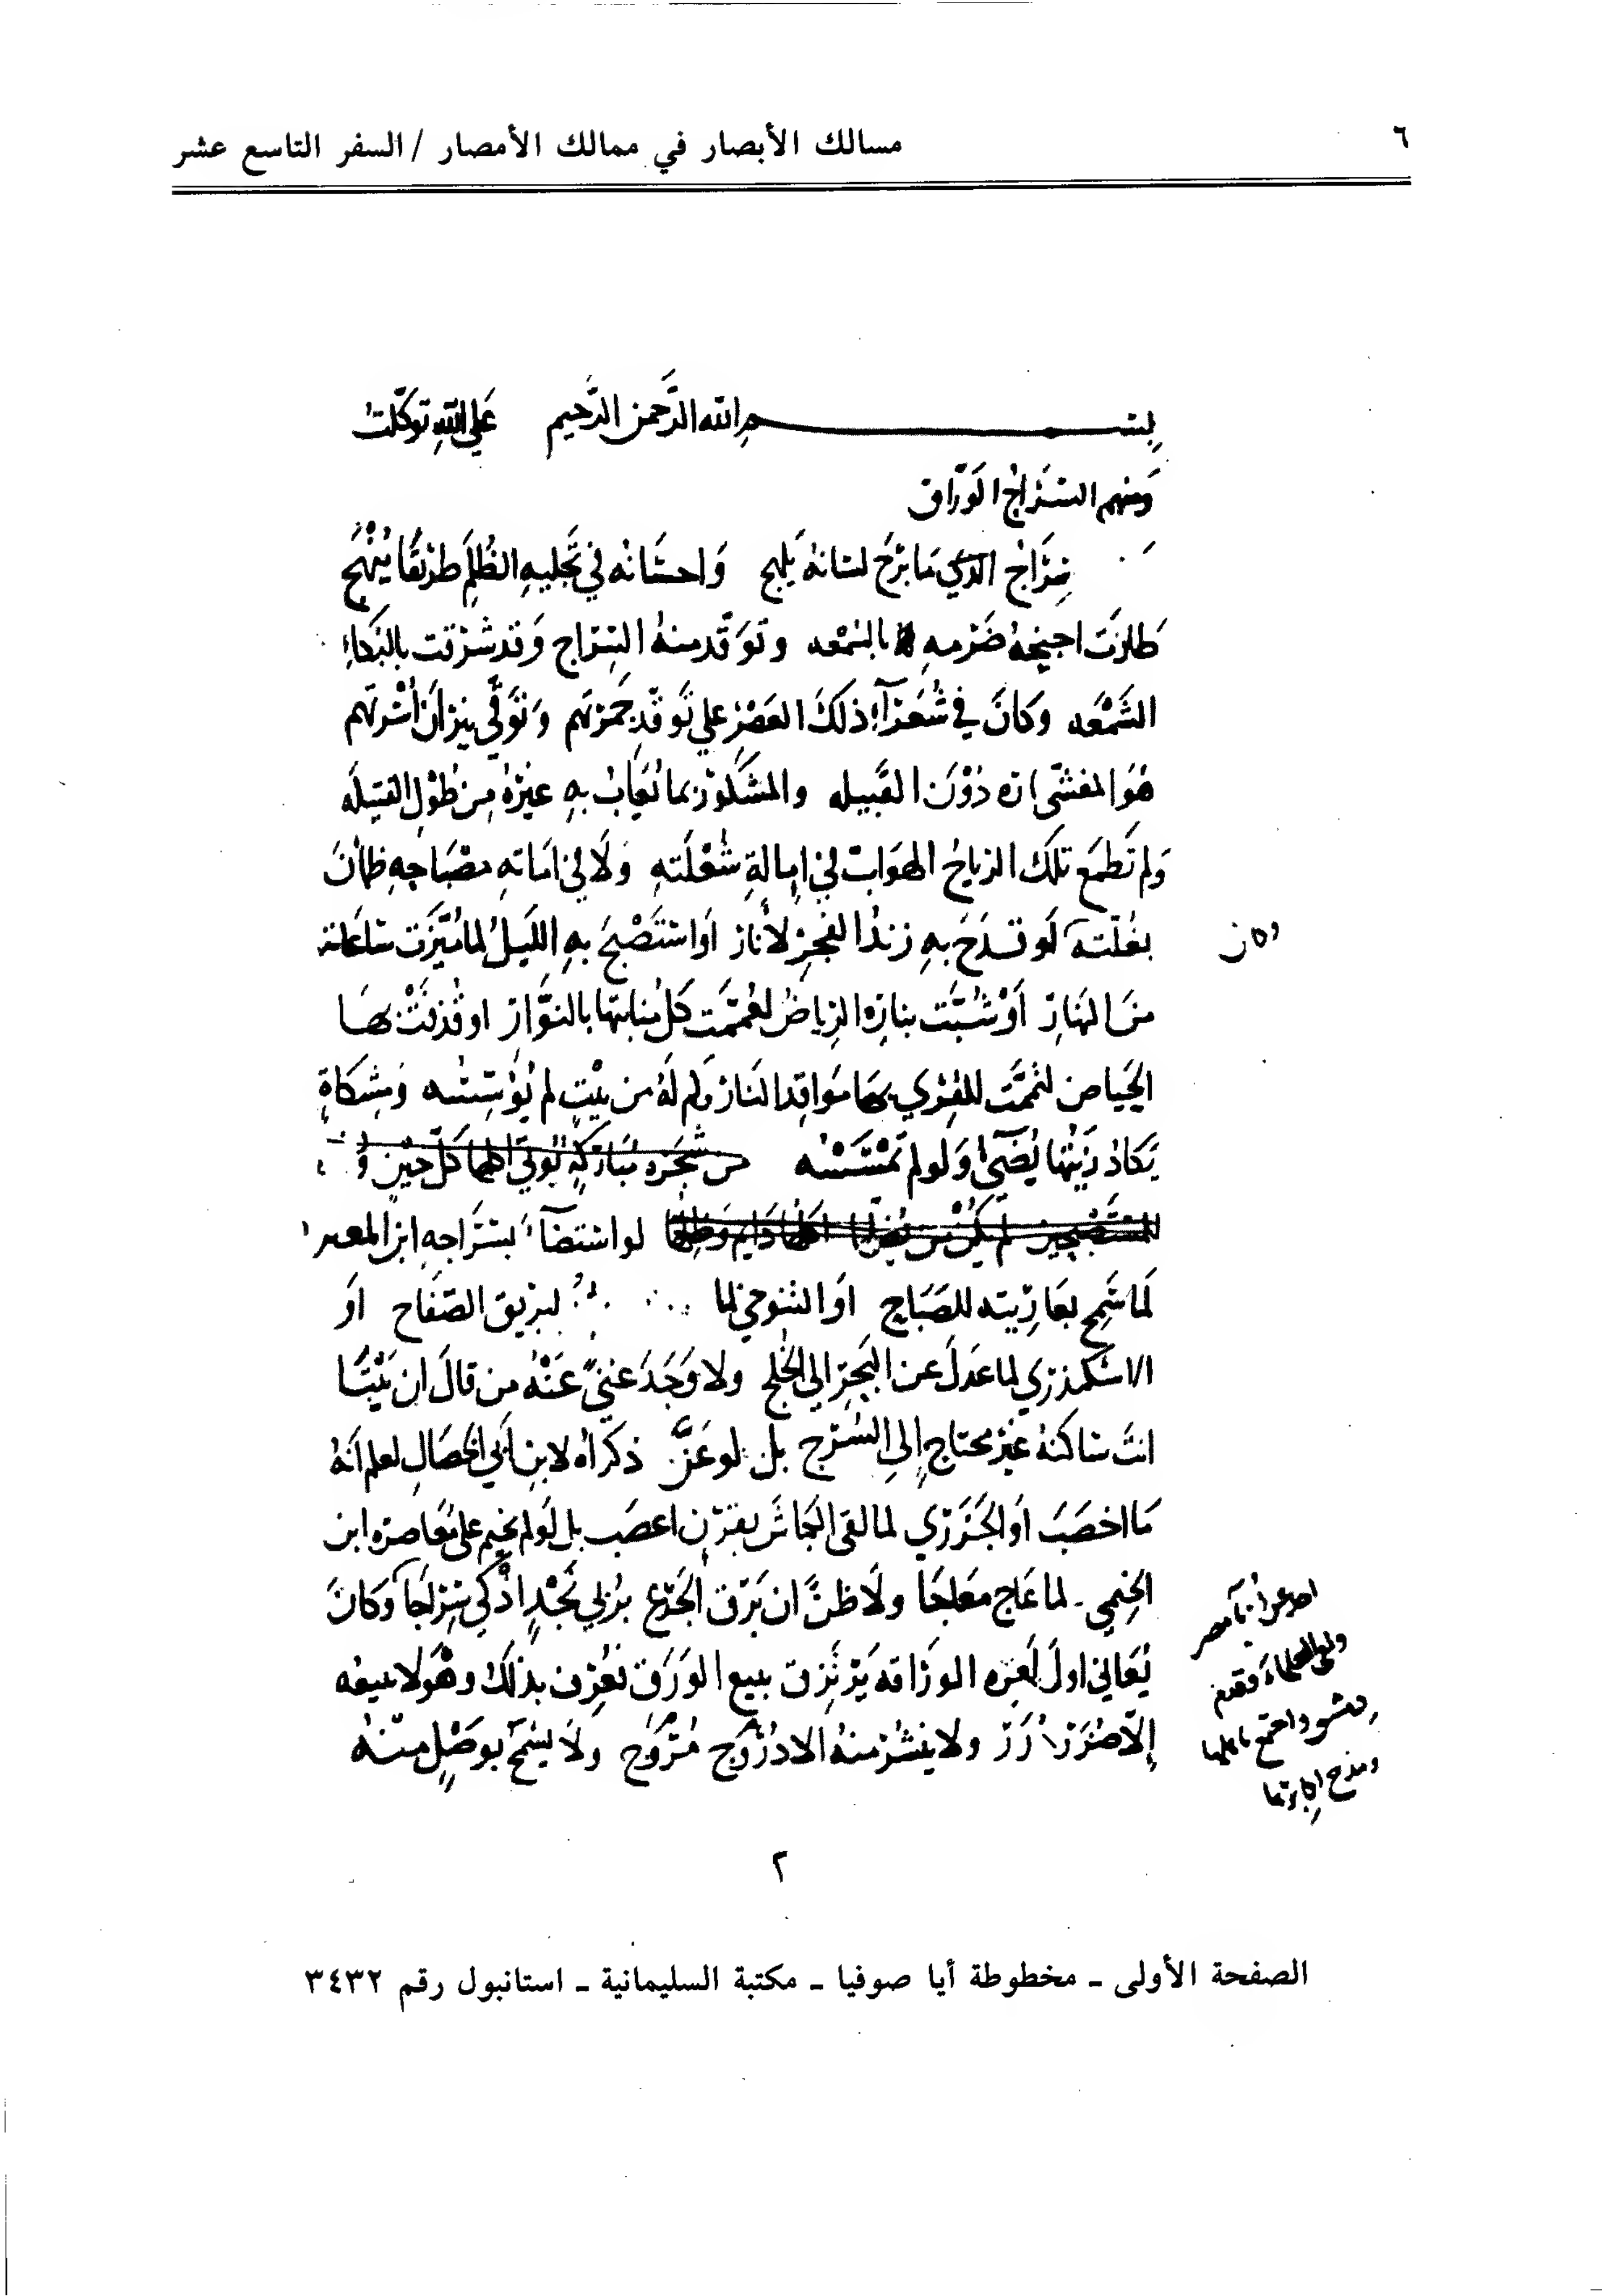 ٦
مسالك الأبصار في ممالك الأمصار / السفر التاسع عشر
بسم الله الرحمن الرحيم على الله توكلت
ومنهم السراج الوراق
سراج الدين مَا برح لسانه يلهج وَاحسَانه في تجليه الظُلَم طريقًا يُنهج
طارَت اجنحة ضرمهِ بالسمعه وتوقد منه السراج وَقد شرقت بالبكاءِ
الشمْعَه وكانَ في شُعَرَآءِ ذلك العَصْر على تَوقّدِ جمرتهم وَتَوقّي نيران أُسْرتهم
هُوَ المفشّى دُوْنَ القَبيله والمشكور بما يُعَابُ بهِ غيرهُ من طُوْلِ الفتيلَه
وَلم تَطمع تلك الرياحُ الهوَاب في امالةِ شُعْلَتهِ وَلَا في اماتهِ مصْبَاحِهِ ظمأن
وكان
بغلته لَو قدَحَ بهِ زندُ الفجرِ لأنارَ اوَ استَصْبحَ بهِ اللَيلُ لما مُيّزت سَاعاته
من النهارِ أوْ شُبَّت بنارِه الرياضُ لعُممَت كل منابتها بالنوَّار او قُذفَتْ بهَا
الحيَاض لتممَّت للقِرى بهَا مَوَاقد النار وَلم لَهُ من بيْتٍ لم يُؤسِّسْه ومِشكاةٍ
يَكادُ زَيتُها يُضيءُ وَلو لم تمْسَسْه من شجَره مُبَاركةٍ تؤتي اكلها كل حِيْنٍ
لو استضآءَ بسراجهِ ابن المعتز
لَمَا سَمح بعَاريته للصَبَاح اوَ التنوخي لما لبريق الصّفَاح اوَ
الاسكندري لما عَدلَ عن البَحرِ الى الخُلج ولا وَجَدَ غنىً عَنْهُ من قالَ ان بَيْتًا
انتَ سَاكنهُ غير محتاجٍ إلى السُرج بل لو عَنَّ ذكرَاه لابن أبي الخصَالِ لعلم أنهُ
مَا اخصَبَ اوَ الجَزري لما لقى الجاش بقرن اعضب بل لَو لم يخيم على مُعَاصره ابن
الخيمي لما عَاج معَاجا ولَا ظنَّ ان بَرق الجَزع بُربى نَجْدٍ اذْكى سِرَاجًا وَكانَ
يُعَاني اولَ امره الورَاقه يَرتزق ببيع الوَرَق فعُرف بذلك وهْوَ لا يبيعُه
إلّا صُرَر دُرَر ولا ينشر منهُ الا دُرُوْج مُرُوج ولَا يسْمح بوصَلٍ منهُ
٢
الصفحة الأولى ـ مخطوطة أيا صوفيا ـ مكتبة السليمانية ـ استانبول رقم ٣٤٣٢